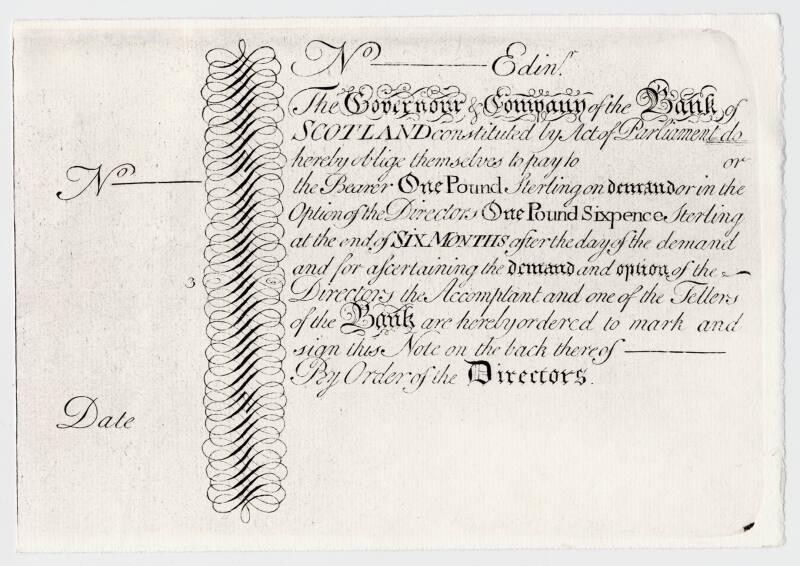 No Edinr.
The Governour & Company of the Bank of
SCOTLAND constituted by Act of Parliament do
hereby oblige themselves to pay to or
the Bearer One Pound Sterling on demand or in the
Option of the Directors One Pound Sixpence Sterling
at the end of SIX MONTHS after the day of the demand
and for ascertaining the demand and option of the
Directors the Accomptant and one of the Tellers
of the Bank are hereby ordered to mark and
sign this Note on the back thereof
By Order of the Directors.
No
3
Date